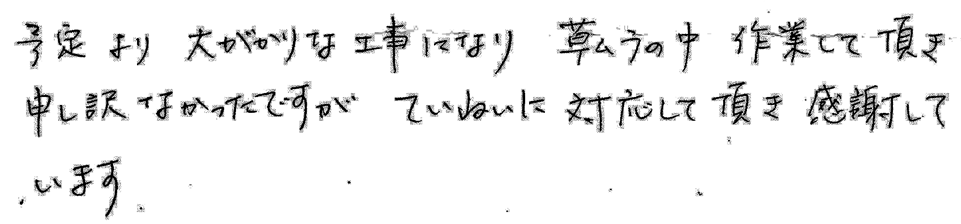 予定より 大がかりな工事になり 草ムラの中 作業して頂き
申し訳なかったですが ていねいに対応して頂き感謝して
います